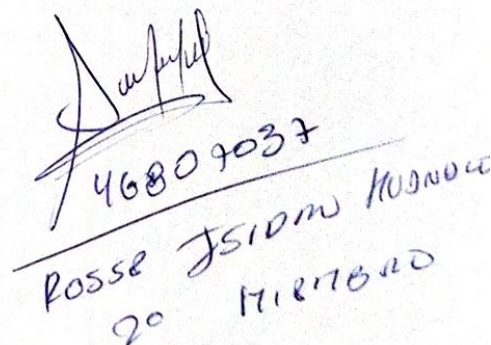 46809037
ROSSE ISIDRO HUANUCO
2º MIEMBRO